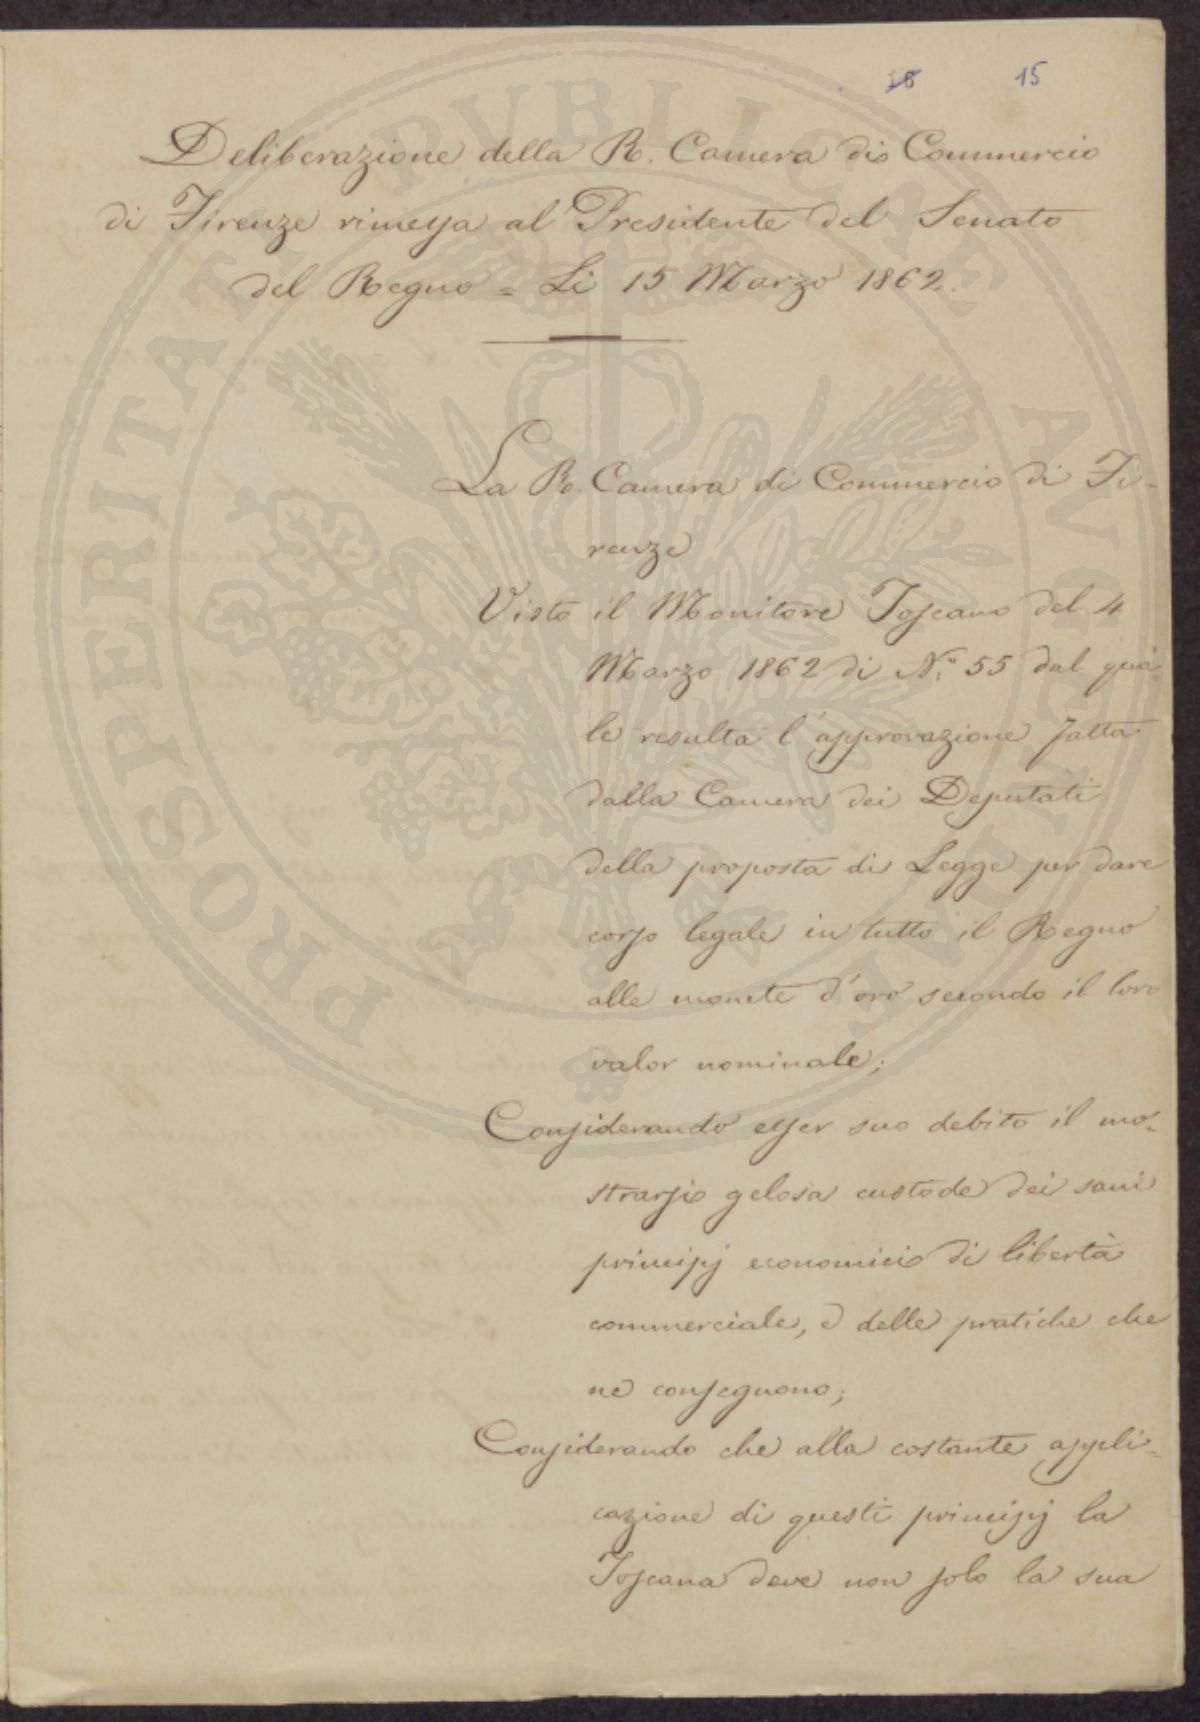 18 15
Deliberazione della R. Camera di Commercio
di Firenze rimessa al Presidente del Senato
del Regno = Li 15 Marzo 1862.
La R. Camera di Commercio di Fi-
renze
Visto il Monitore Toscano del 4
Marzo 1862 di N.º 55 dal qua-
le resulta l'approvazione fatta
dalla Camera dei Deputati
della proposta di Legge per dare
corso legale in tutto il Regno
alle monete d'oro secondo il loro
valor nominale;
Considerando esser suo debito il mo-
strarsi gelosa custode dei sani
principj economici di libertà
commerciale, e delle pratiche che
ne conseguono;
Considerando che alla costante appli-
cazione di questi principj la
Toscana deve non solo la sua
PROSPERITATI PVBLICVAE AVGENDAE